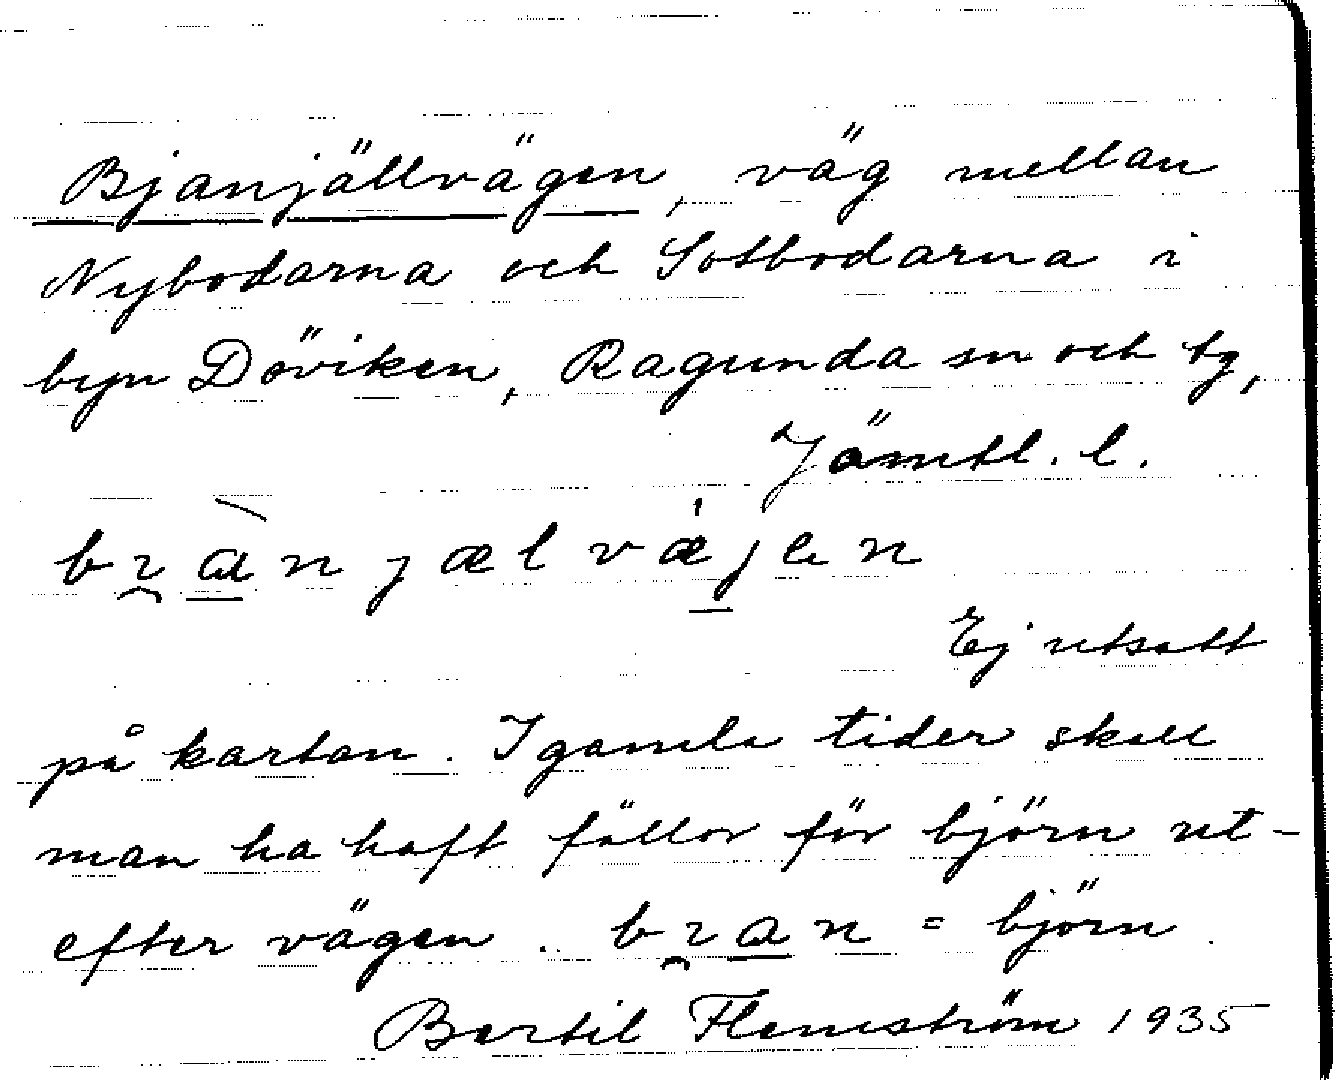 Bjanjällvägen, väg mellan
Nybodarna och Sotbodarna i
byn Döviken, Ragunda sn och tg,
Jämtl. l.
bɿànjælvæ̀jen
Ej utsatt
på kartan. I gamla tider skall
man ha haft fällor för björn ut-
efter vägen. bɿan = björn
Bertil Flemström 1935